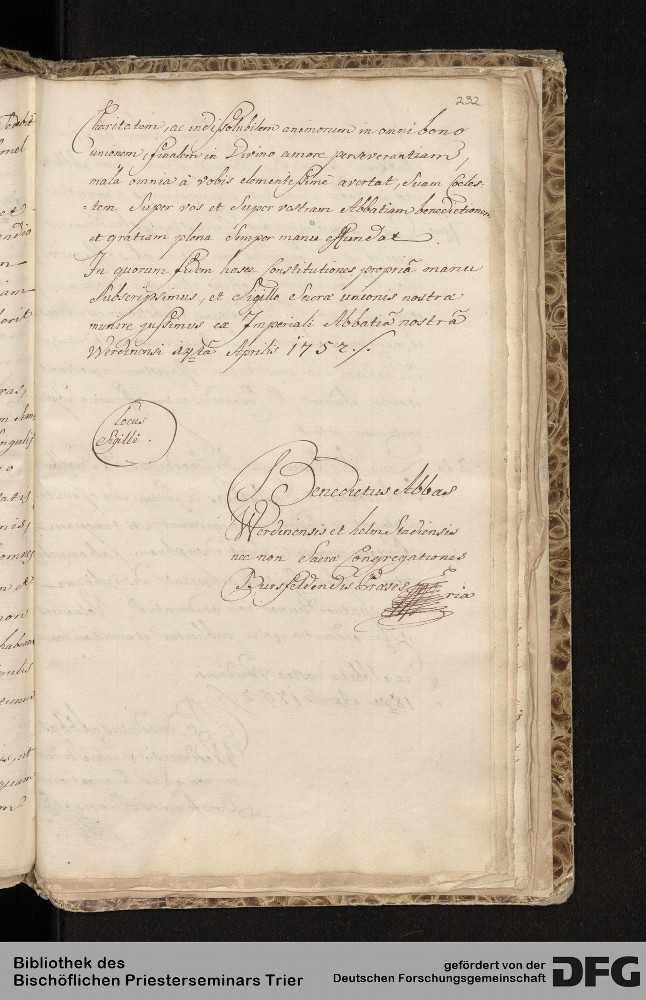 232
Charitatem, ac indissolubilem animorum in omni bono
unionem, finalem in Divino amore perseverantiam,
mala omnia à vobis clementissimè avertat, suam cœles-
-tem super vos et super vestram Abbatiam benedictionem
et gratiam plena semper manu effundat.
In quorum fidem hasce Constitutiones propriâ manu
subscripsimus, et Sigillo Sacræ unionis nostræ
munire jussimus ex Imperiali Abbatiâ nostrâ
Werdinensi Aprilis 1752 ./.
Locus
Sigilli.
Benedictus Abbas
Werdinensis et helmStadiensis
nec non Sacræ Congregationis
Bursfeldensis Præses
Bibliothek des
Bischöflichen Priesterseminars Trier
gefördert von der
Deutschen Forschungsgemeinschaft
DFG